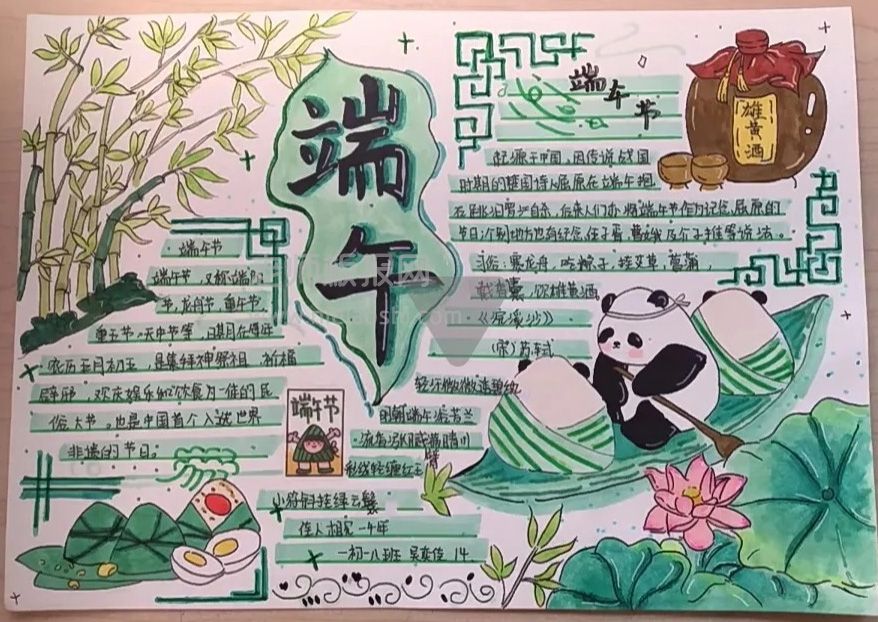 端午
端午节
端午节，又称端阳
节，龙舟节，重午节，
重五节，天中节等，日期在每年
农历五月初五，是集拜神祭祖、祈福
辟邪、欢庆娱乐和饮食为一体的民
俗大节。也是中国首个入选世界
非遗的节日。
端午节
端午节
起源于中国，因传说战国
时期的楚国诗人屈原在端午抱
石跳汨罗江自杀，后来人们亦将端午节作为纪念屈原的
节日；个别地方也有纪念伍子胥、曹娥及介子推等说法。
习俗：赛龙舟，吃粽子，挂艾草，菖蒲，
戴香囊，饮雄黄酒。
雄黄酒
《浣溪沙》
（宋）苏轼
轻汗微微透碧纨
明朝端午浴芳兰
流香涨腻满晴川
彩线轻缠红玉臂
小符斜挂绿云鬟
佳人相见一千年
一初一八班 吴奕佳 14